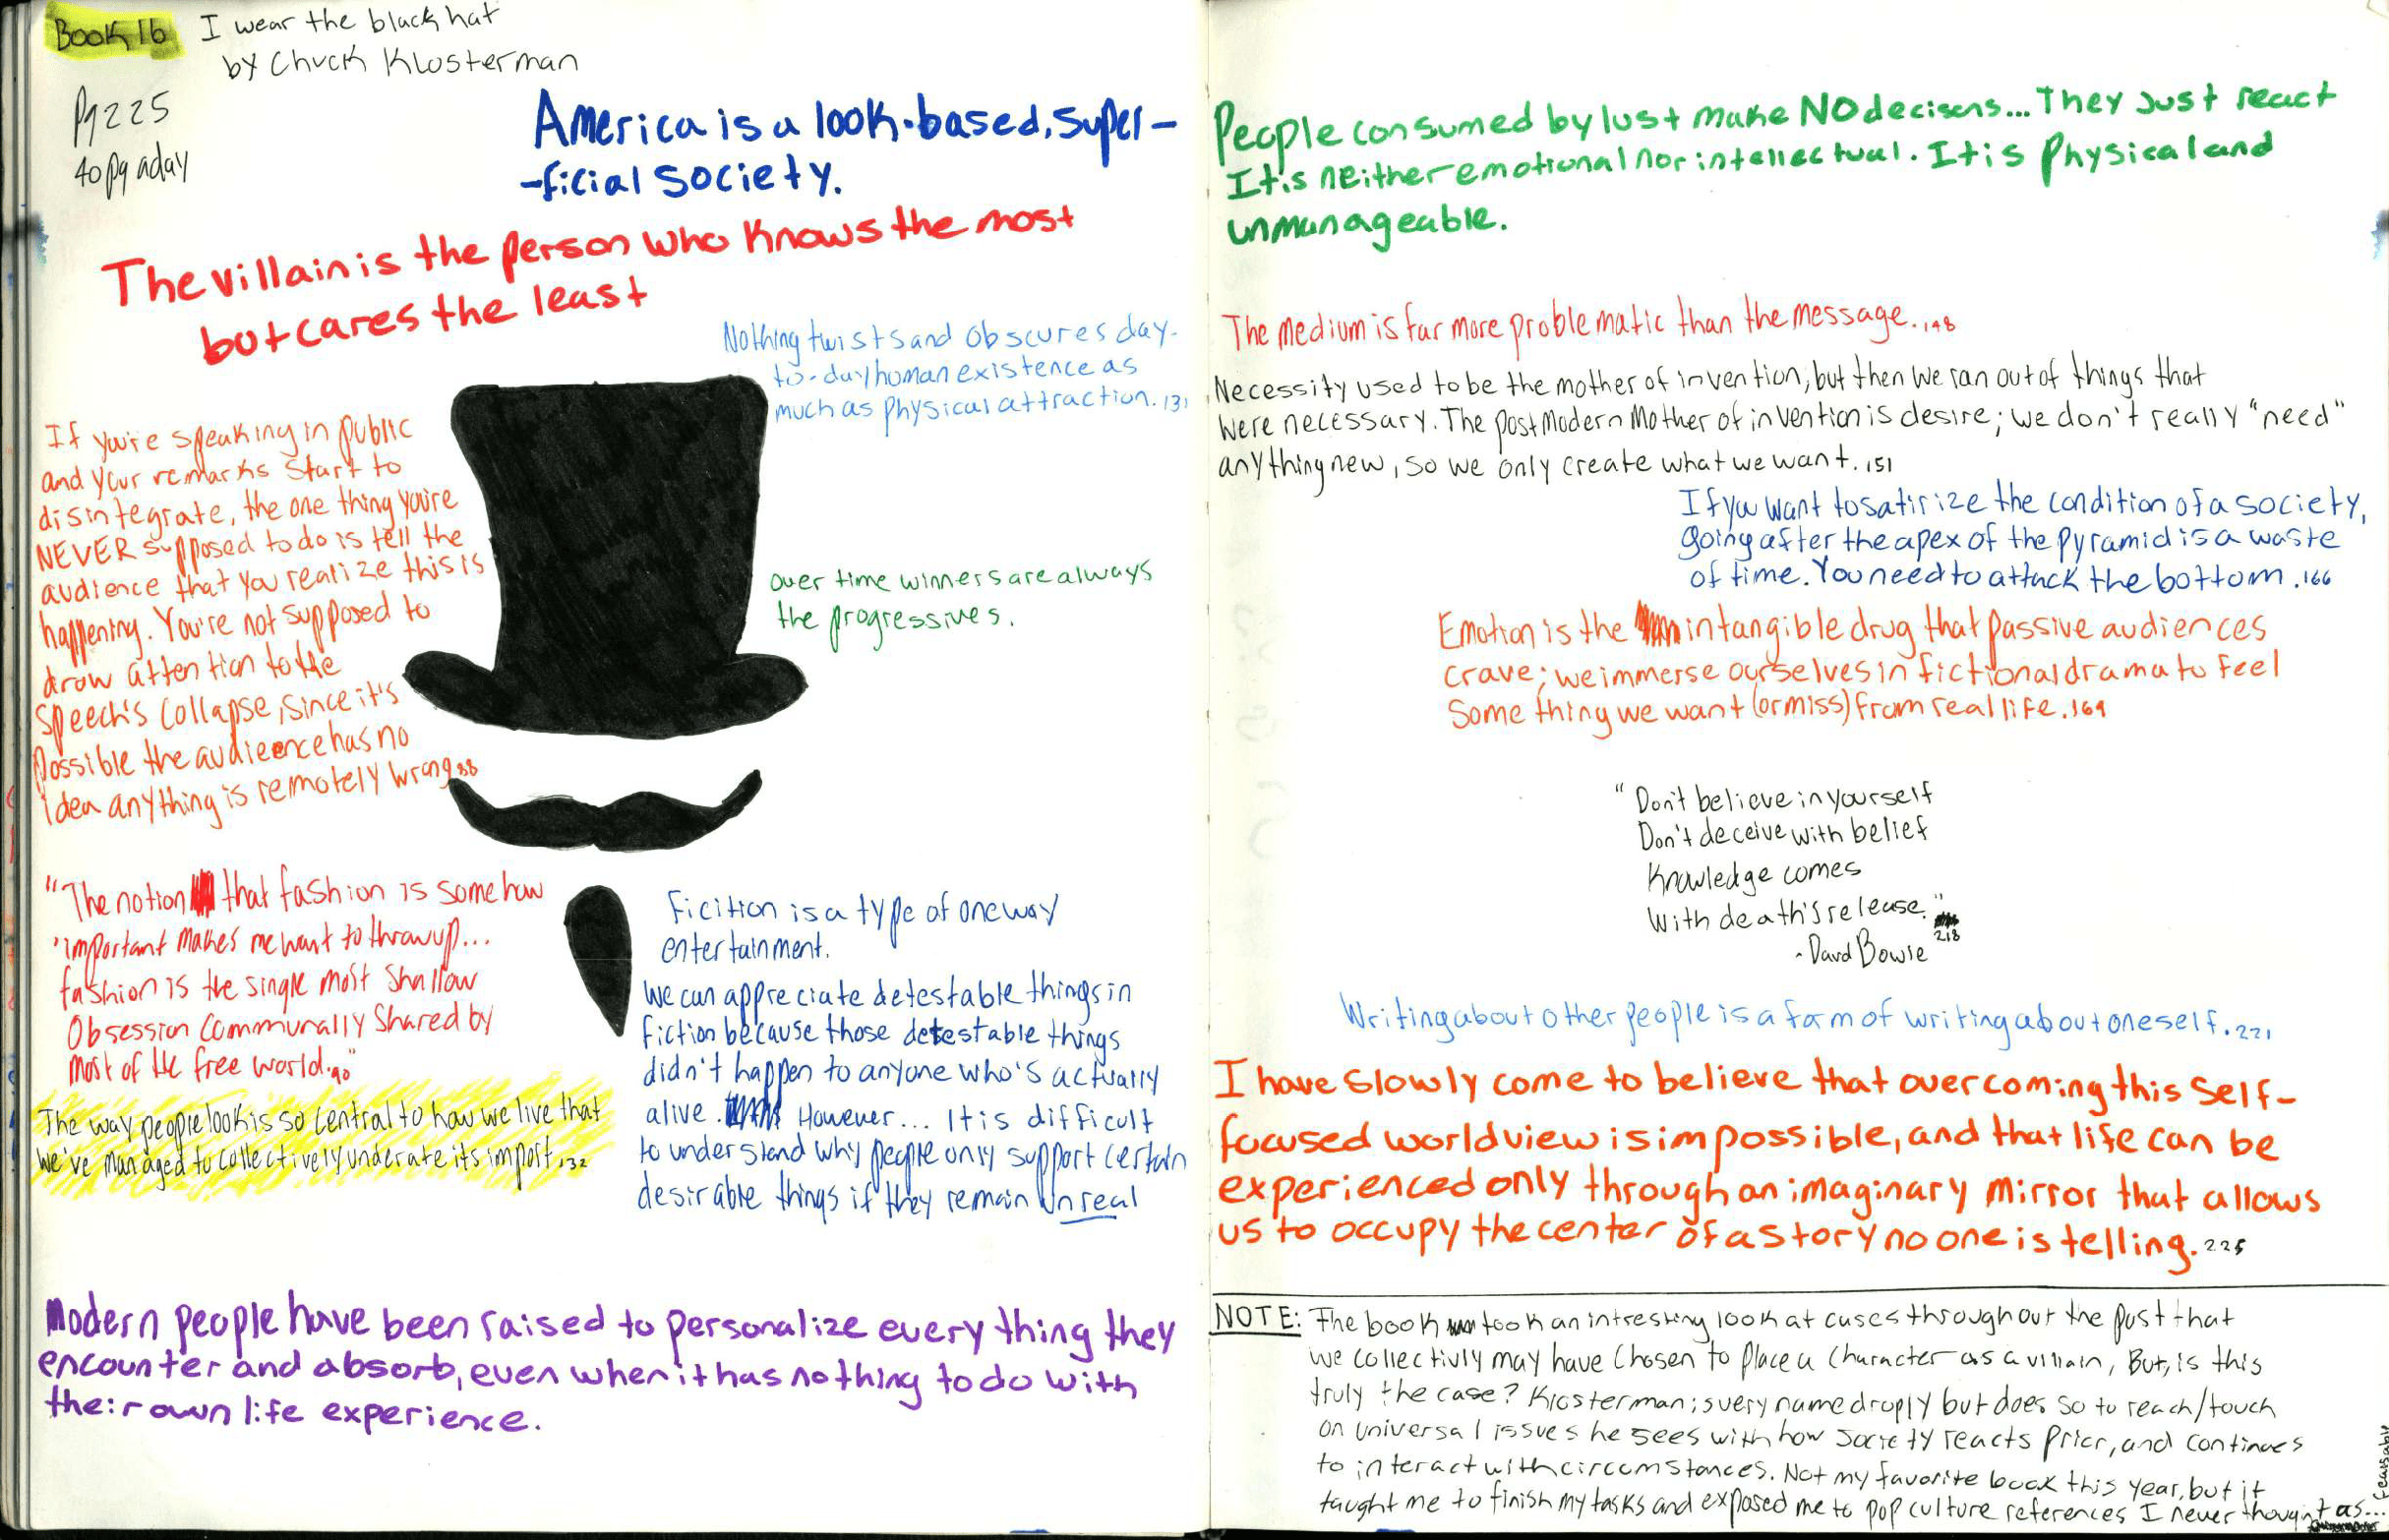 Book 16 I wear the black hat
by Chuck Klosterman
Pg 225
40 pg a day
America is a look-based, super-
-ficial society.
The villain is the person who knows the most
but cares the least
Nothing twists and obscures day-
to-day human existence as
much as physical attraction. 131
If you're speaking in public
and your remarks start to
disintegrate, the one thing you're
NEVER supposed to do is tell the
audience that you realize this is
happening. You're not supposed to
draw attention to the
speech's collapse, since it's
possible the audieence has no
idea anything is remotely wrong. 88
over time winners are always
the progressives.
"The notion that fashion is somehow
important makes me want to throw up...
fashion is the single most shallow
Obsession communally shared by
most of the free world. 90"
The way people look is so central to how we live that
we've managed to collectively underate its import. 132
Ficition is a type of one way
entertainment.
We can appreciate detestable things in
fiction because those detestable things
didn't happen to anyone who's actually
alive. However... It is difficult
to understand why people only support certain
desirable things if they remain unreal
Modern people have been raised to personalize every thing they
encounter and absorb, even when it has nothing to do with
their own life experience.
People consumed by lust make NO decisens... They just react
It is neither emotional nor intellectual. It is physical and
unmanageable.
The medium is far more problematic than the message. 148
Necessity used to be the mother of invention, but then we ran out of things that
were necessary. The postmodern mother of invention is desire; we don't really "need"
anything new, so we only create what we want. 151
If you want to satirize the condition of a society,
going after the apex of the pyramid is a waste
of time. You need to attack the bottom. 166
Emotion is the intangible drug that passive audiences
crave; we immerse ourselves in fictional drama to feel
something we want (or miss) from real life. 169
"Don't believe in yourself
Don't deceive with belief
Knowledge comes
With death's release."
218
- David Bowie
Writing about other people is a form of writing about oneself. 221
I have slowly come to believe that overcoming this self-
focused worldview is impossible, and that life can be
experienced only through an imaginary mirror that allows
us to occupy the center of a story no one is telling. 225
NOTE: The book took an intresting look at cases throughout the past that
we collectivly may have chosen to place a character as a villain, But, is this
truly the case? Klosterman is very name droply but does so to reach/touch
on universal issues he sees with how society reacts prior, and continues
to interact with circumstances. Not my favorite book this year, but it
taught me to finish my tasks and exposed me to pop culture references I never thought as...